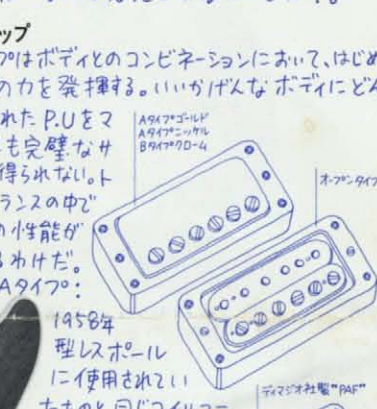 ップ
プはボディとのコンビネーションにおいて、はじめ
の力を発揮する。いいかげんなボディにどん
れたP.Uをマ
も完璧なサ
得られない。ト
ランスの中で
の性能が
るわけだ。
Aタイプ:
1958年
型レスポール
に使用されてい
たものと同じコイルコー
Aタイプゴールド
Aタイプニッケル
Bタイプクローム
オープンタイプ
ディマジオ社製"PAF"